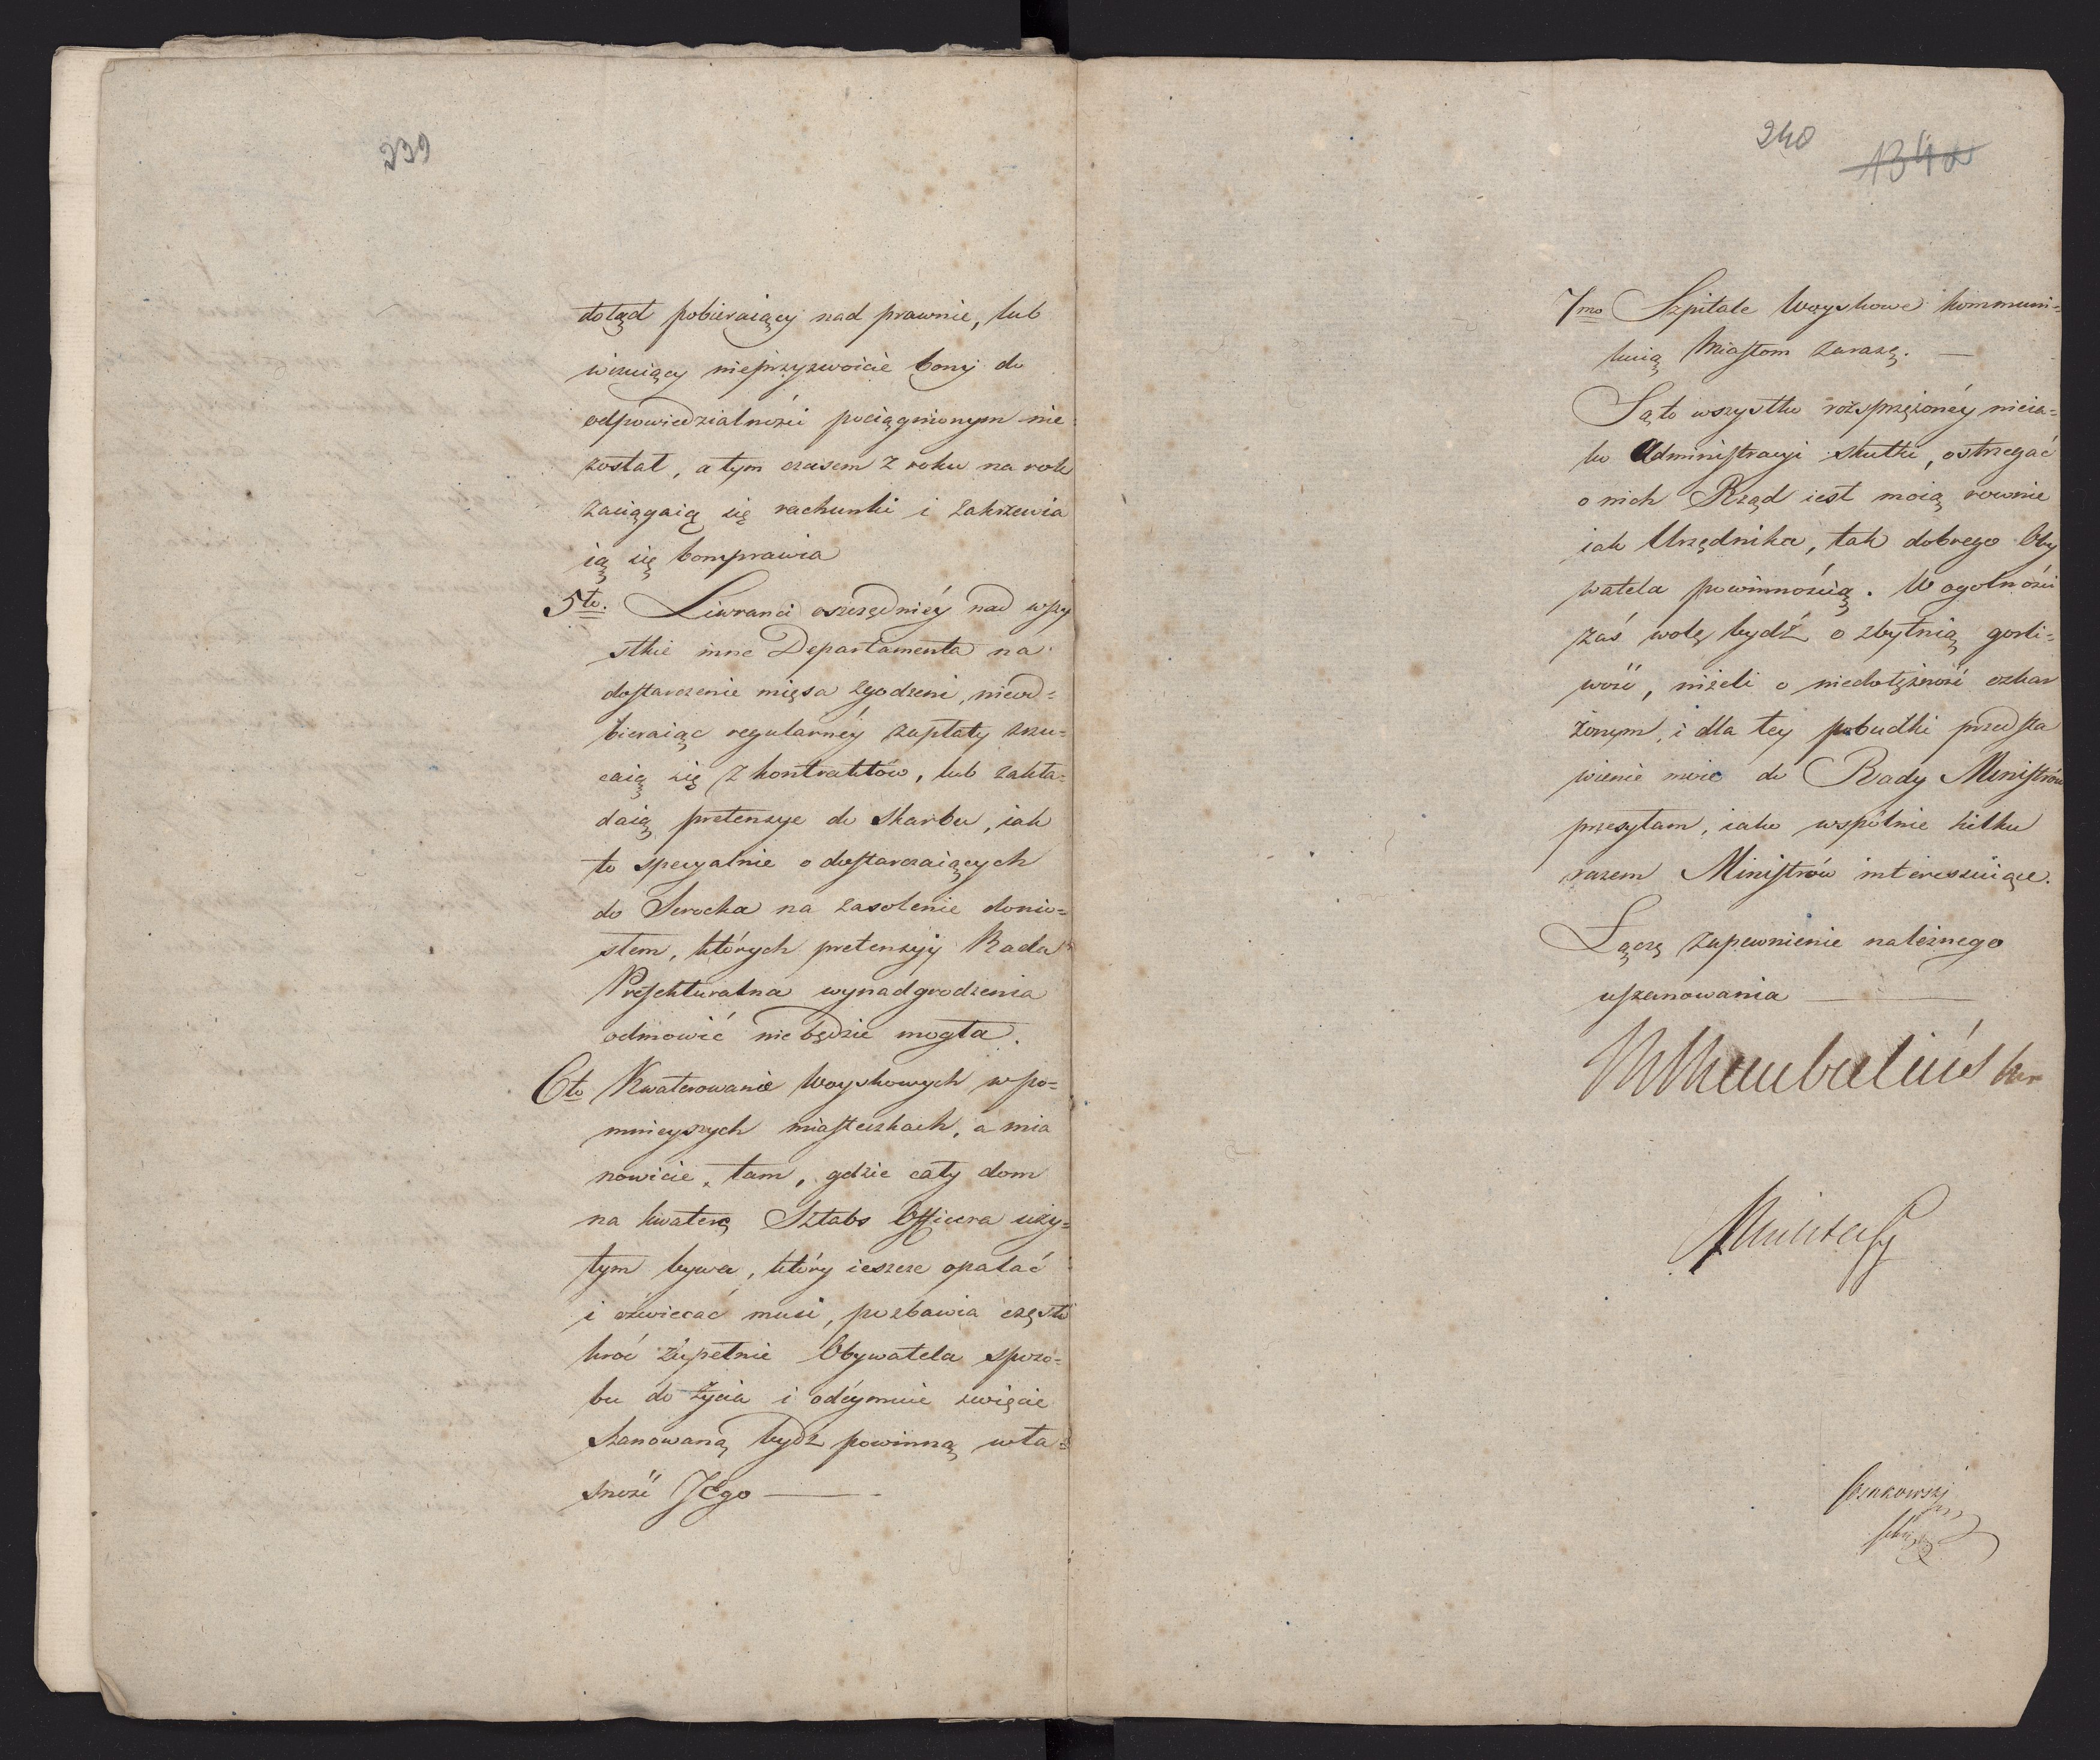 239
dotąd pobieraiący nad prawnie, lub
wizuiący nieprzyzwoicie bony do
odpowiedzialności pociągnionym nie
został, a tym czasem z roku na rok
zaciągaią się rachunki i zakrzewia
ią się bomprawia
5to. Liwranci oszczędniéy nad wszy
stkie inne Departamenta na
dostarczenie mięsa zgodzeni, nieod=
bieraiąc regularnéy zapłaty zrzu=
caią się z kontraktów, lub zakła=
daią pretensye do Skarbu, iak
to specyalnie o dostarczaiących
do Serocka na zasolenie donio=
słem, których pretensyi Rada
Prefekturalna wynadgrodzenia
odmowić nie będzie mogła.
6to Kwaterowanie Woyskowych w po=
mnieyszych miasteczkach, a mia
nowicie, tam, gdzie cały dom
na kwaterę Sztabs Officera uży=
tym bywa, który ieszcze opalać
i oświecać musi, pozbawia często
kroć zupełnie Obywatela sposo=
bu do życia i odéymuie święcie
szanowaną bydź powinną wła=
sność JEgo
240
134a
7mo Szpitale Woyskowe kommuni=
kuią Miastom zarazę.
Są to wszystko rozsprzężonéy nieia=
ko Administracyi skutki, ostrzegać
o nich Rząd iest moią rownie
iak Urzędnika, tak dobrego Oby
watela powinnością. W ogolności
zaś wolę bydź o zbytnią gorli=
wość, niżeli o niedołężność oskar
żonym, i dla tey pobudki przedsta
wienie moie do Rady Ministrów
przesyłam, iako wspólnie kilku
razem Ministrów interessuiące.
Łączę zapewnienie należnego
uszanowania